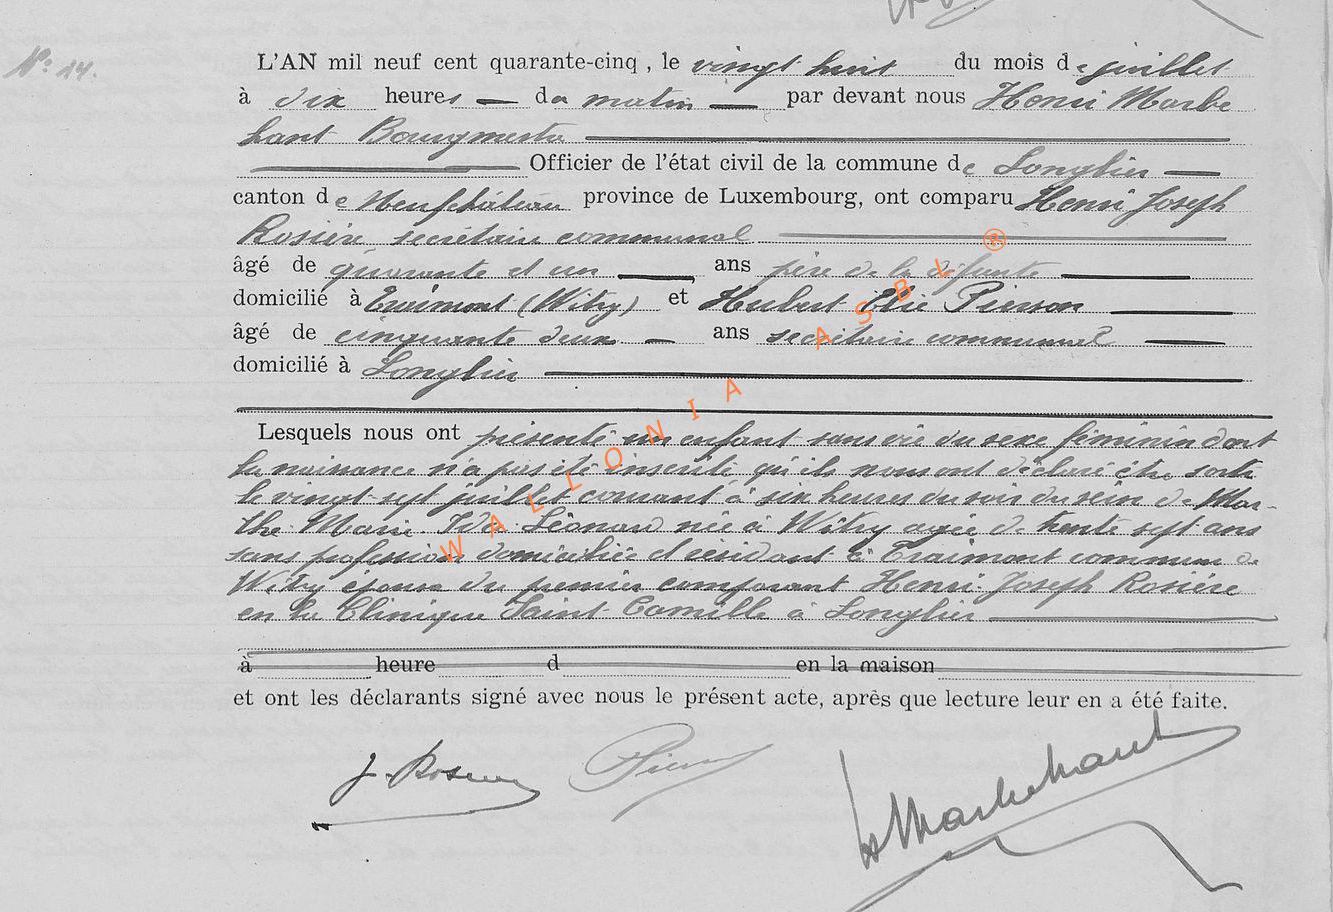 N° 14.
L'AN mil neuf cent quarante-cinq, le vingt huit du mois de juillet
à dix heures du matin par devant nous Henri Marbe
hant Bourgmestre
Officier de l'état civil de la commune de Longlier
canton de Neufchâteau province de Luxembourg, ont comparu Henri Joseph
Rosière secrétaire communal
âgé de quarante et un ans père de la défunte
domicilié à Traimont (Witry) et Hubert Elie Pierson
âgé de cinquante deux ans secrétaire communal
domicilié à Longlier
Lesquels nous ont présenté un enfant sans vie du sexe féminin dont
la naissance n'a pas été inscrite qu'ils nous ont déclaré être sortie
le vingt-sept juillet courant à six heures du soir du sein de Mar-
the Marie Ida Léonard née à Witry agée de trente sept ans
sans profession domiciliée et résidant à Traimont commune de
Witry épouse du premier comparant Henri Joseph Rosière
en la Clinique Saint-Camille à Longlier
à heure d en la maison
et ont les déclarants signé avec nous le présent acte, après que lecture leur en a été faite.
WALLONIA ASBL ®